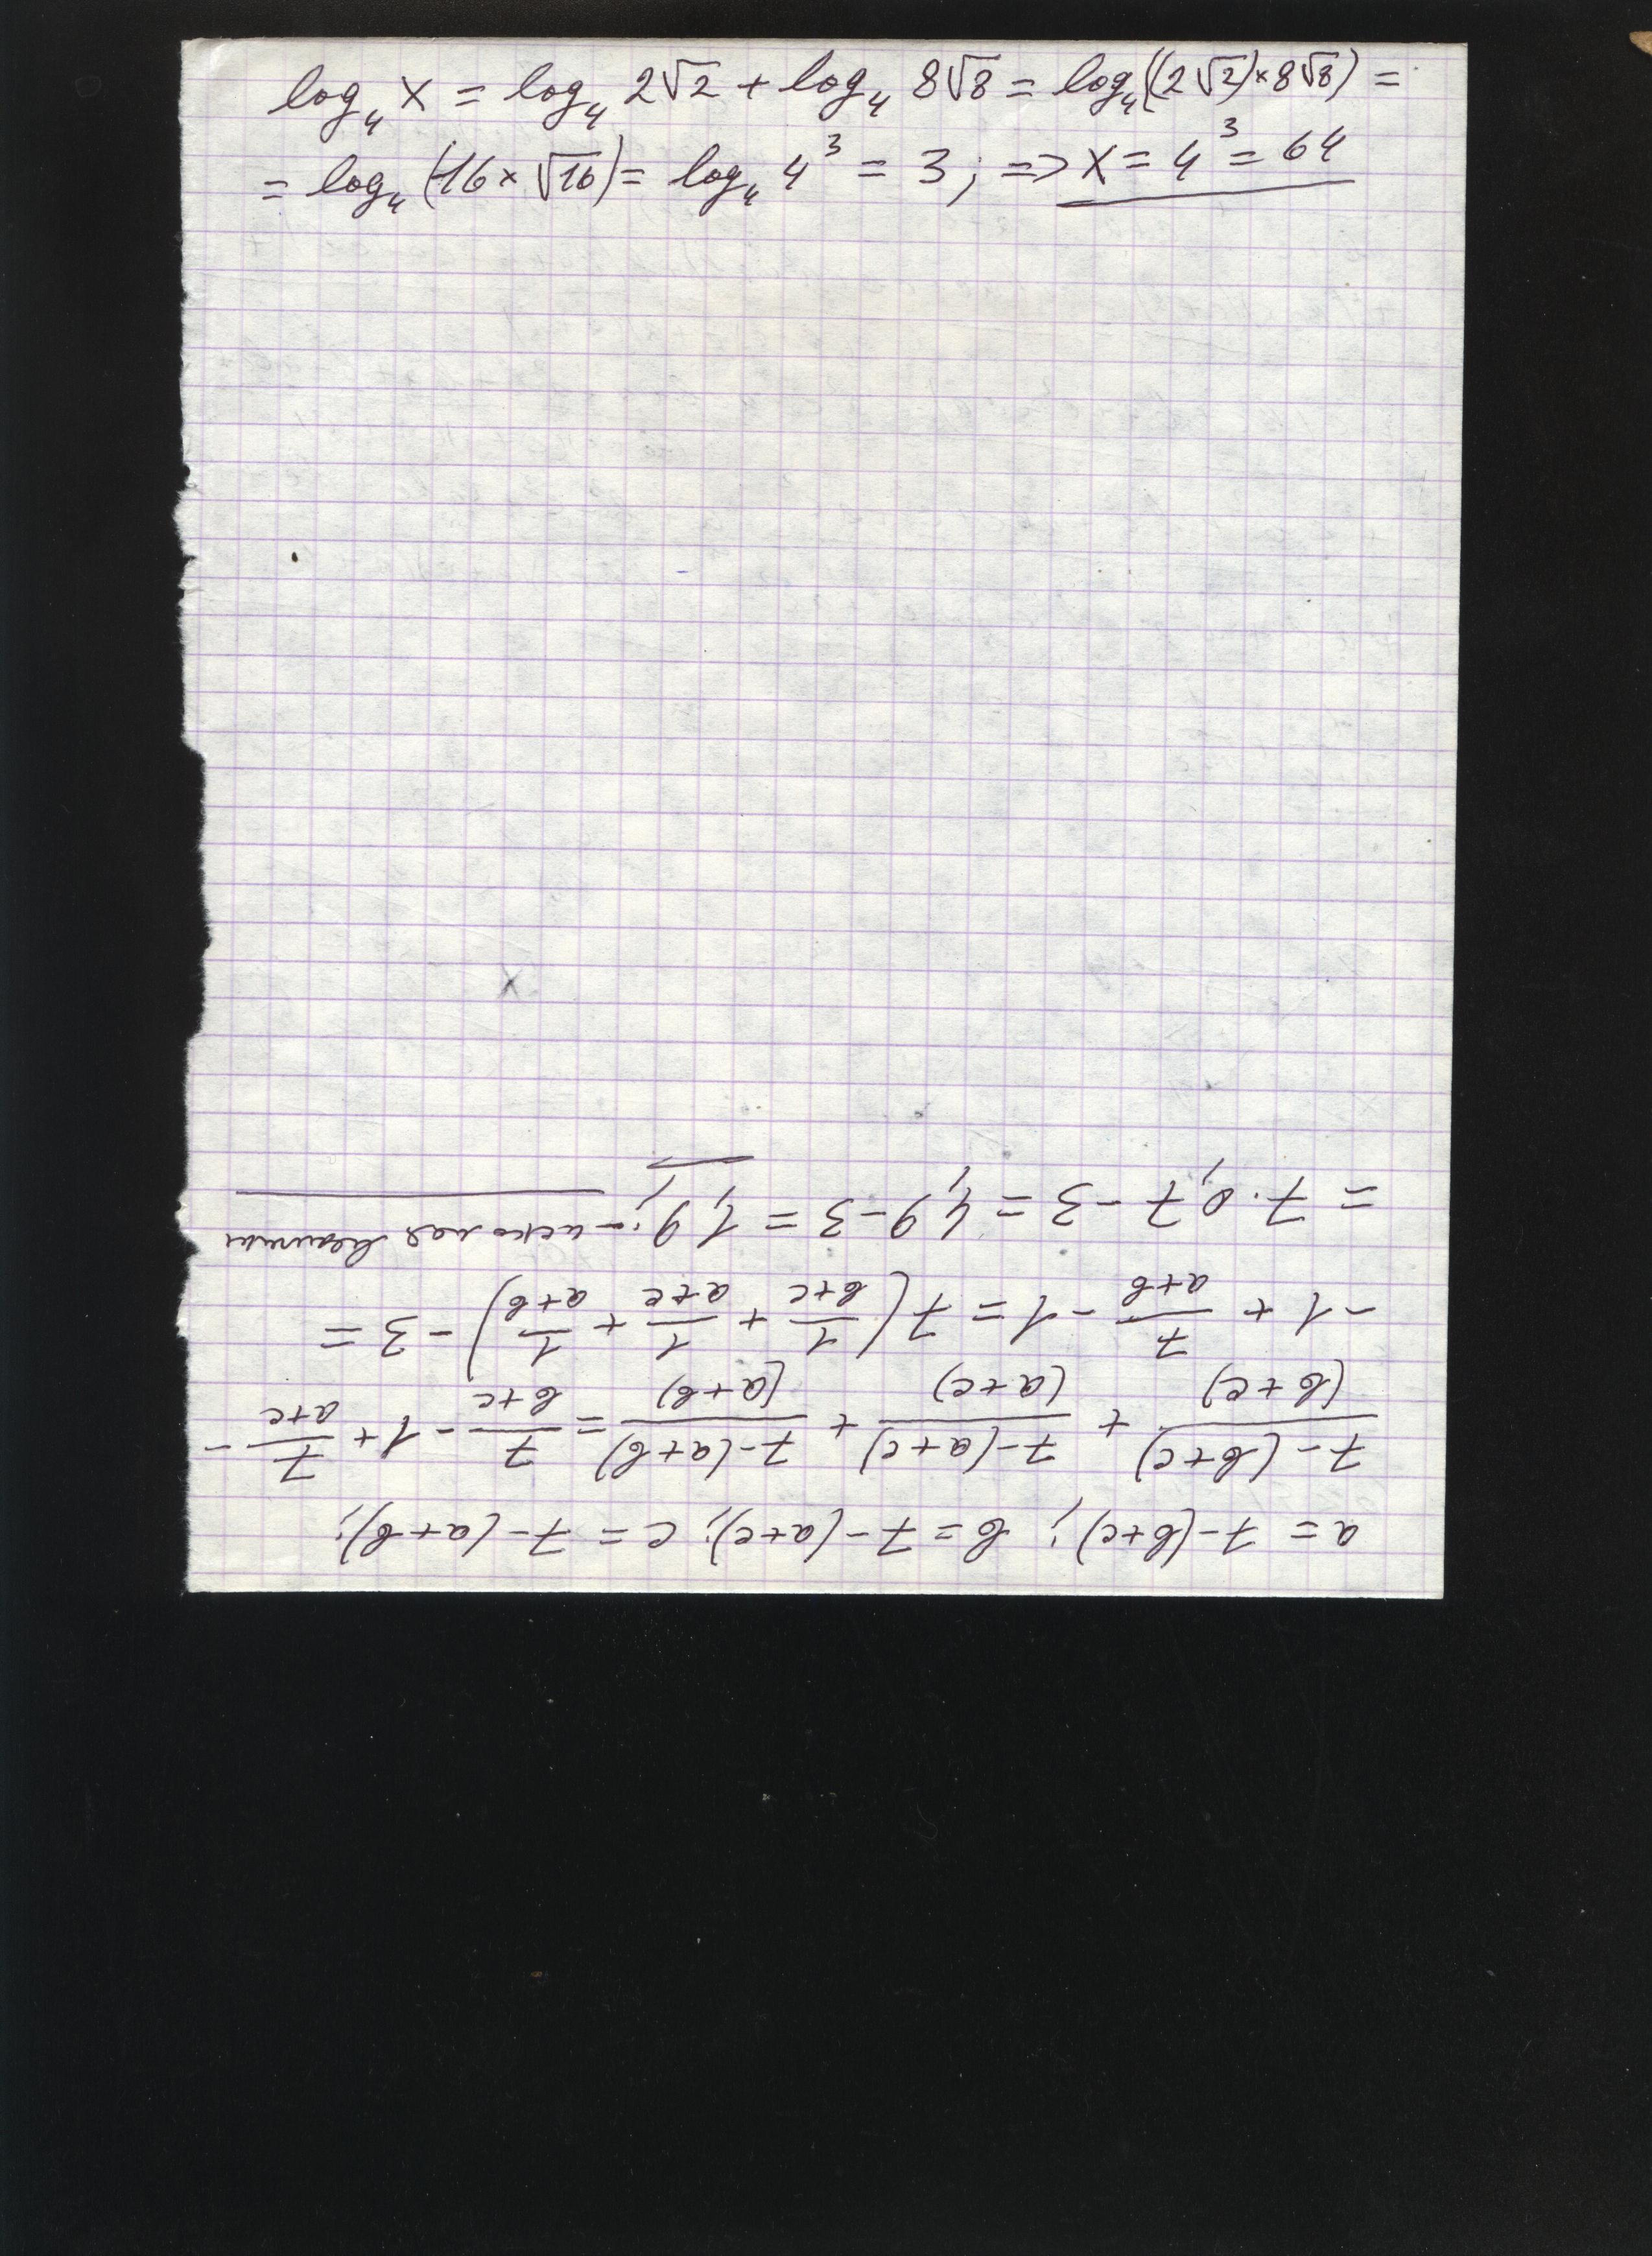 log₄ x = log₄ 2√2 + log₄ 8√8 = log₄((2√2)×8√8) =
= log₄(16×√16) = log₄ 4³ = 3; => x = 4³ = 64
a = 7-(b+c); b = 7-(a+c); c = 7-(a+b);
(7-(b+c))/(b+c) + (7-(a+c))/(a+c) + (7-(a+b))/(a+b) = 7/(b+c) - 1 + 7/(a+c) -
-1 + 7/(a+b) - 1 = 7(1/(b+c) + 1/(a+c) + 1/(a+b)) - 3 =
= 7·0,7 - 3 = 4,9 - 3 = 1,9; -